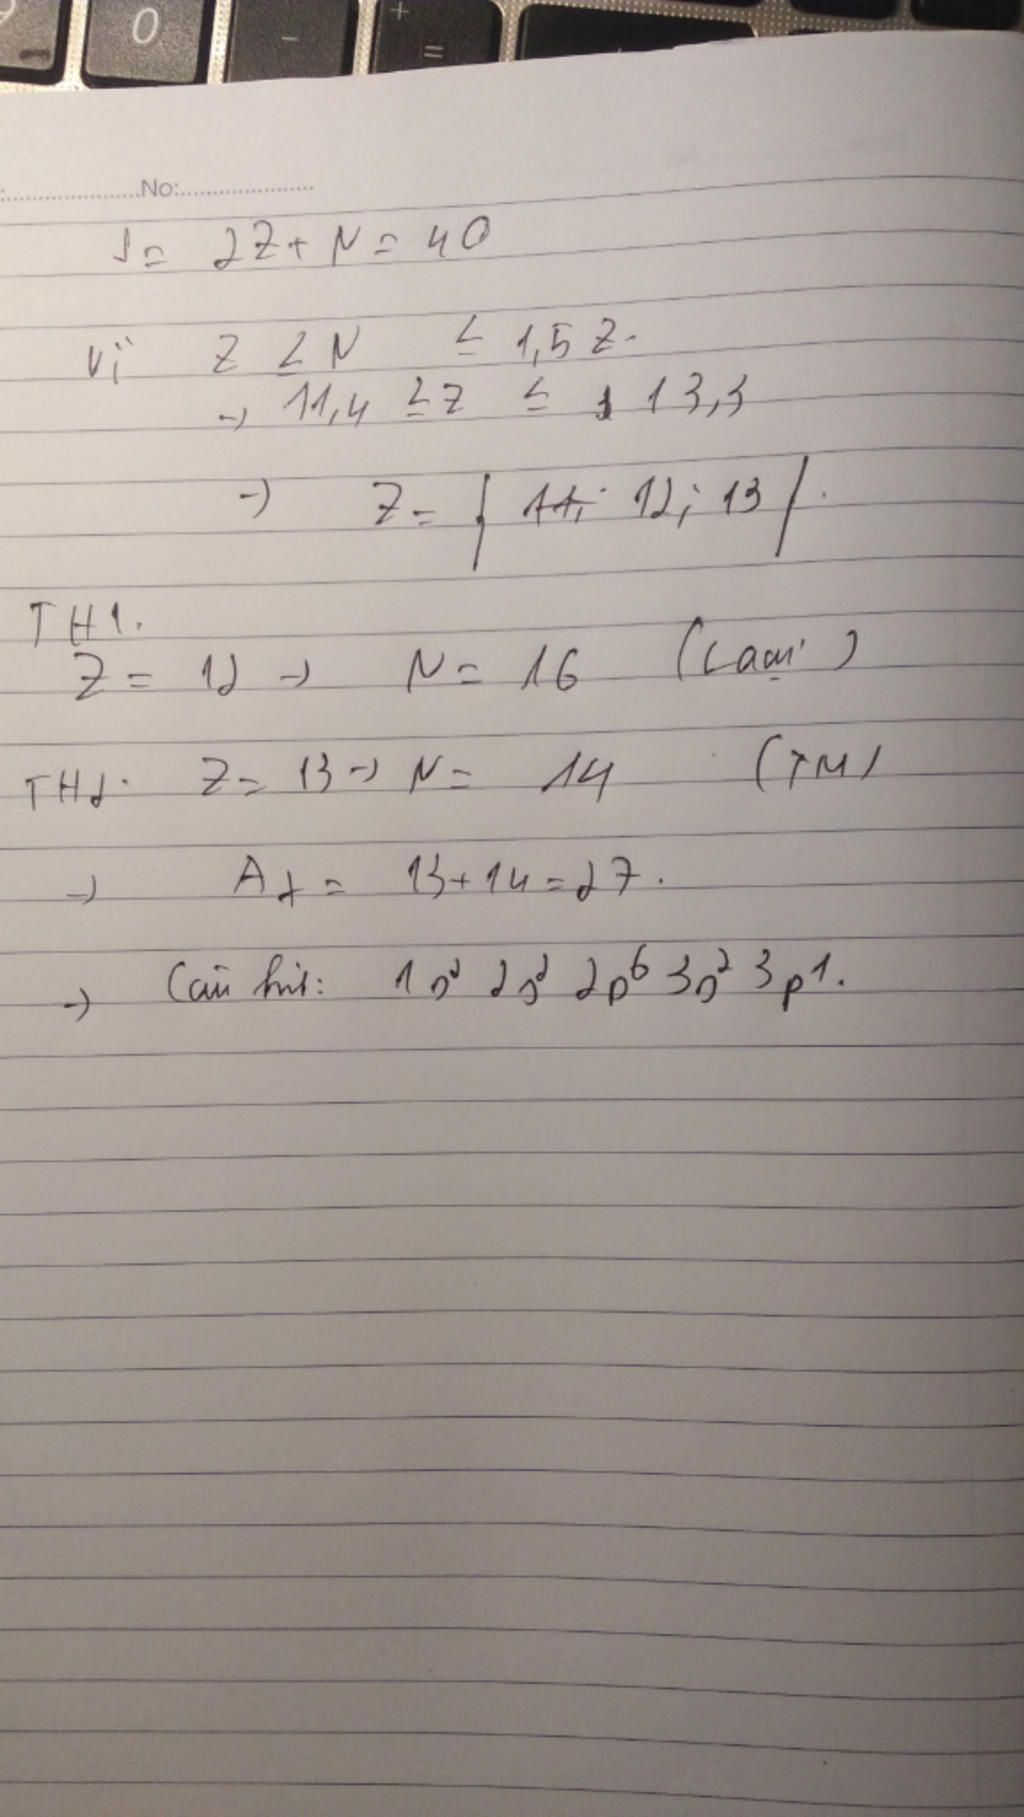 0
-
+
=
No:
S = 2Z + N = 40
Vì Z ≤ N ≤ 1,5 Z.
→ 11,4 ≤ Z ≤ 13,3
→ Z = { 11; 12; 13 }.
TH1.
Z = 12 → N = 16 (Loại)
TH2: Z = 13 → N = 14 (TM)
→ A = 13 + 14 = 27.
→ Cấu hình: 1s² 2s² 2p⁶ 3s² 3p1.